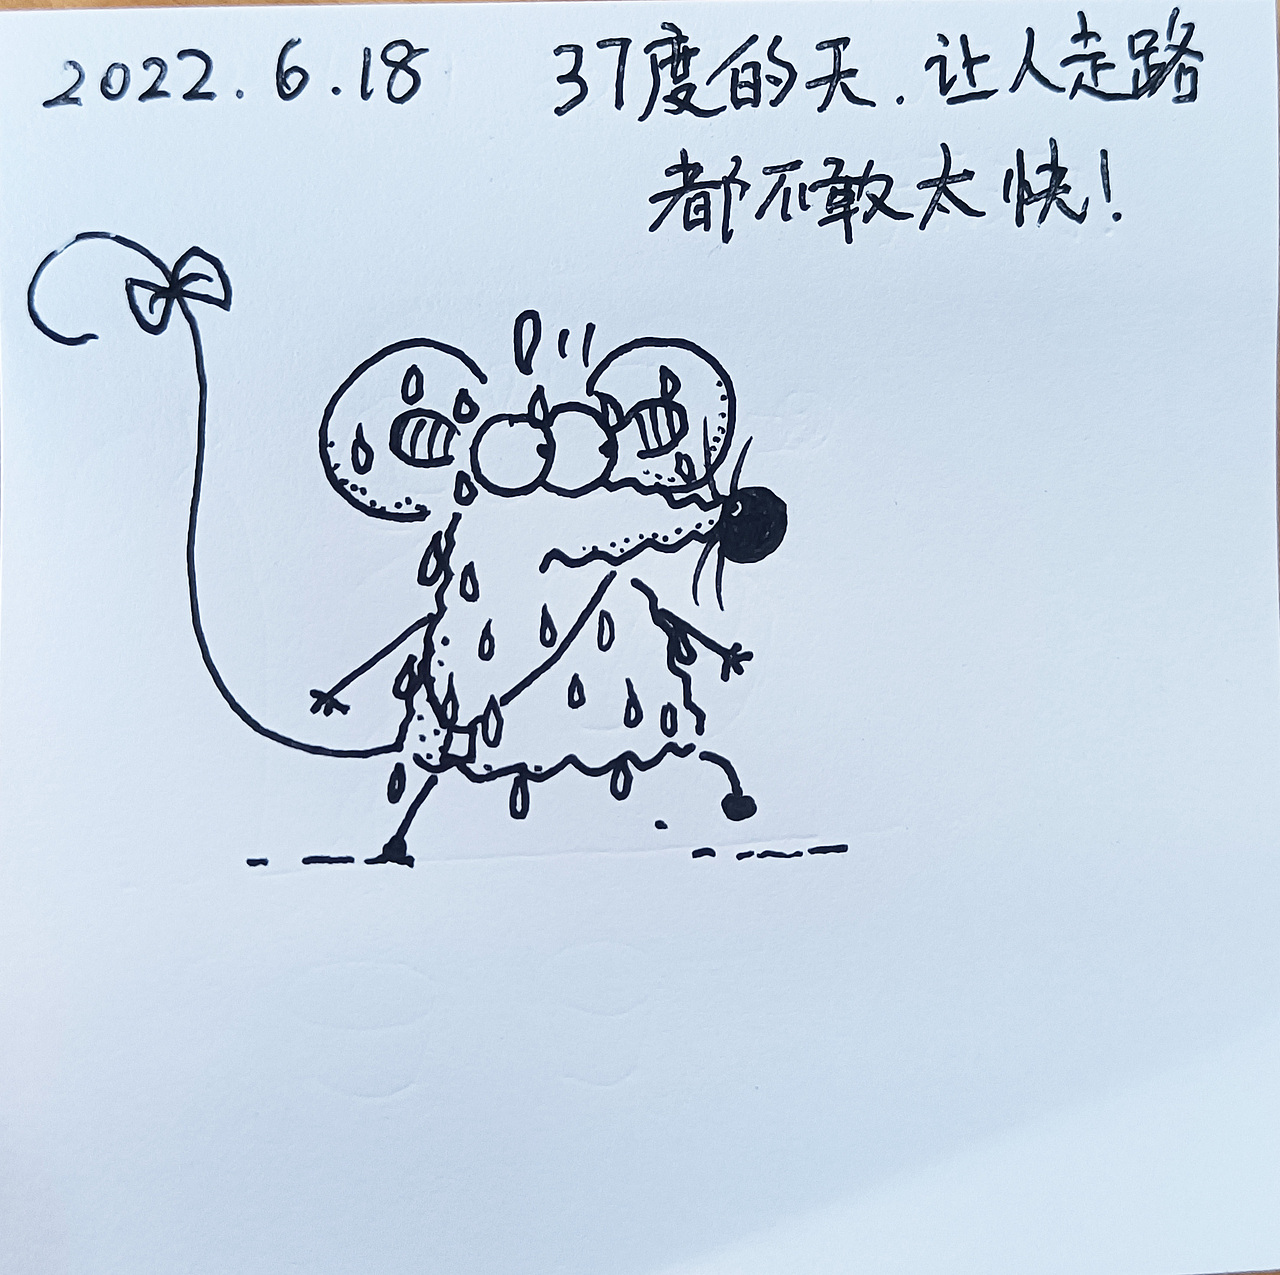 2022.6.18 37度的天.让人走路
都不敢太快!